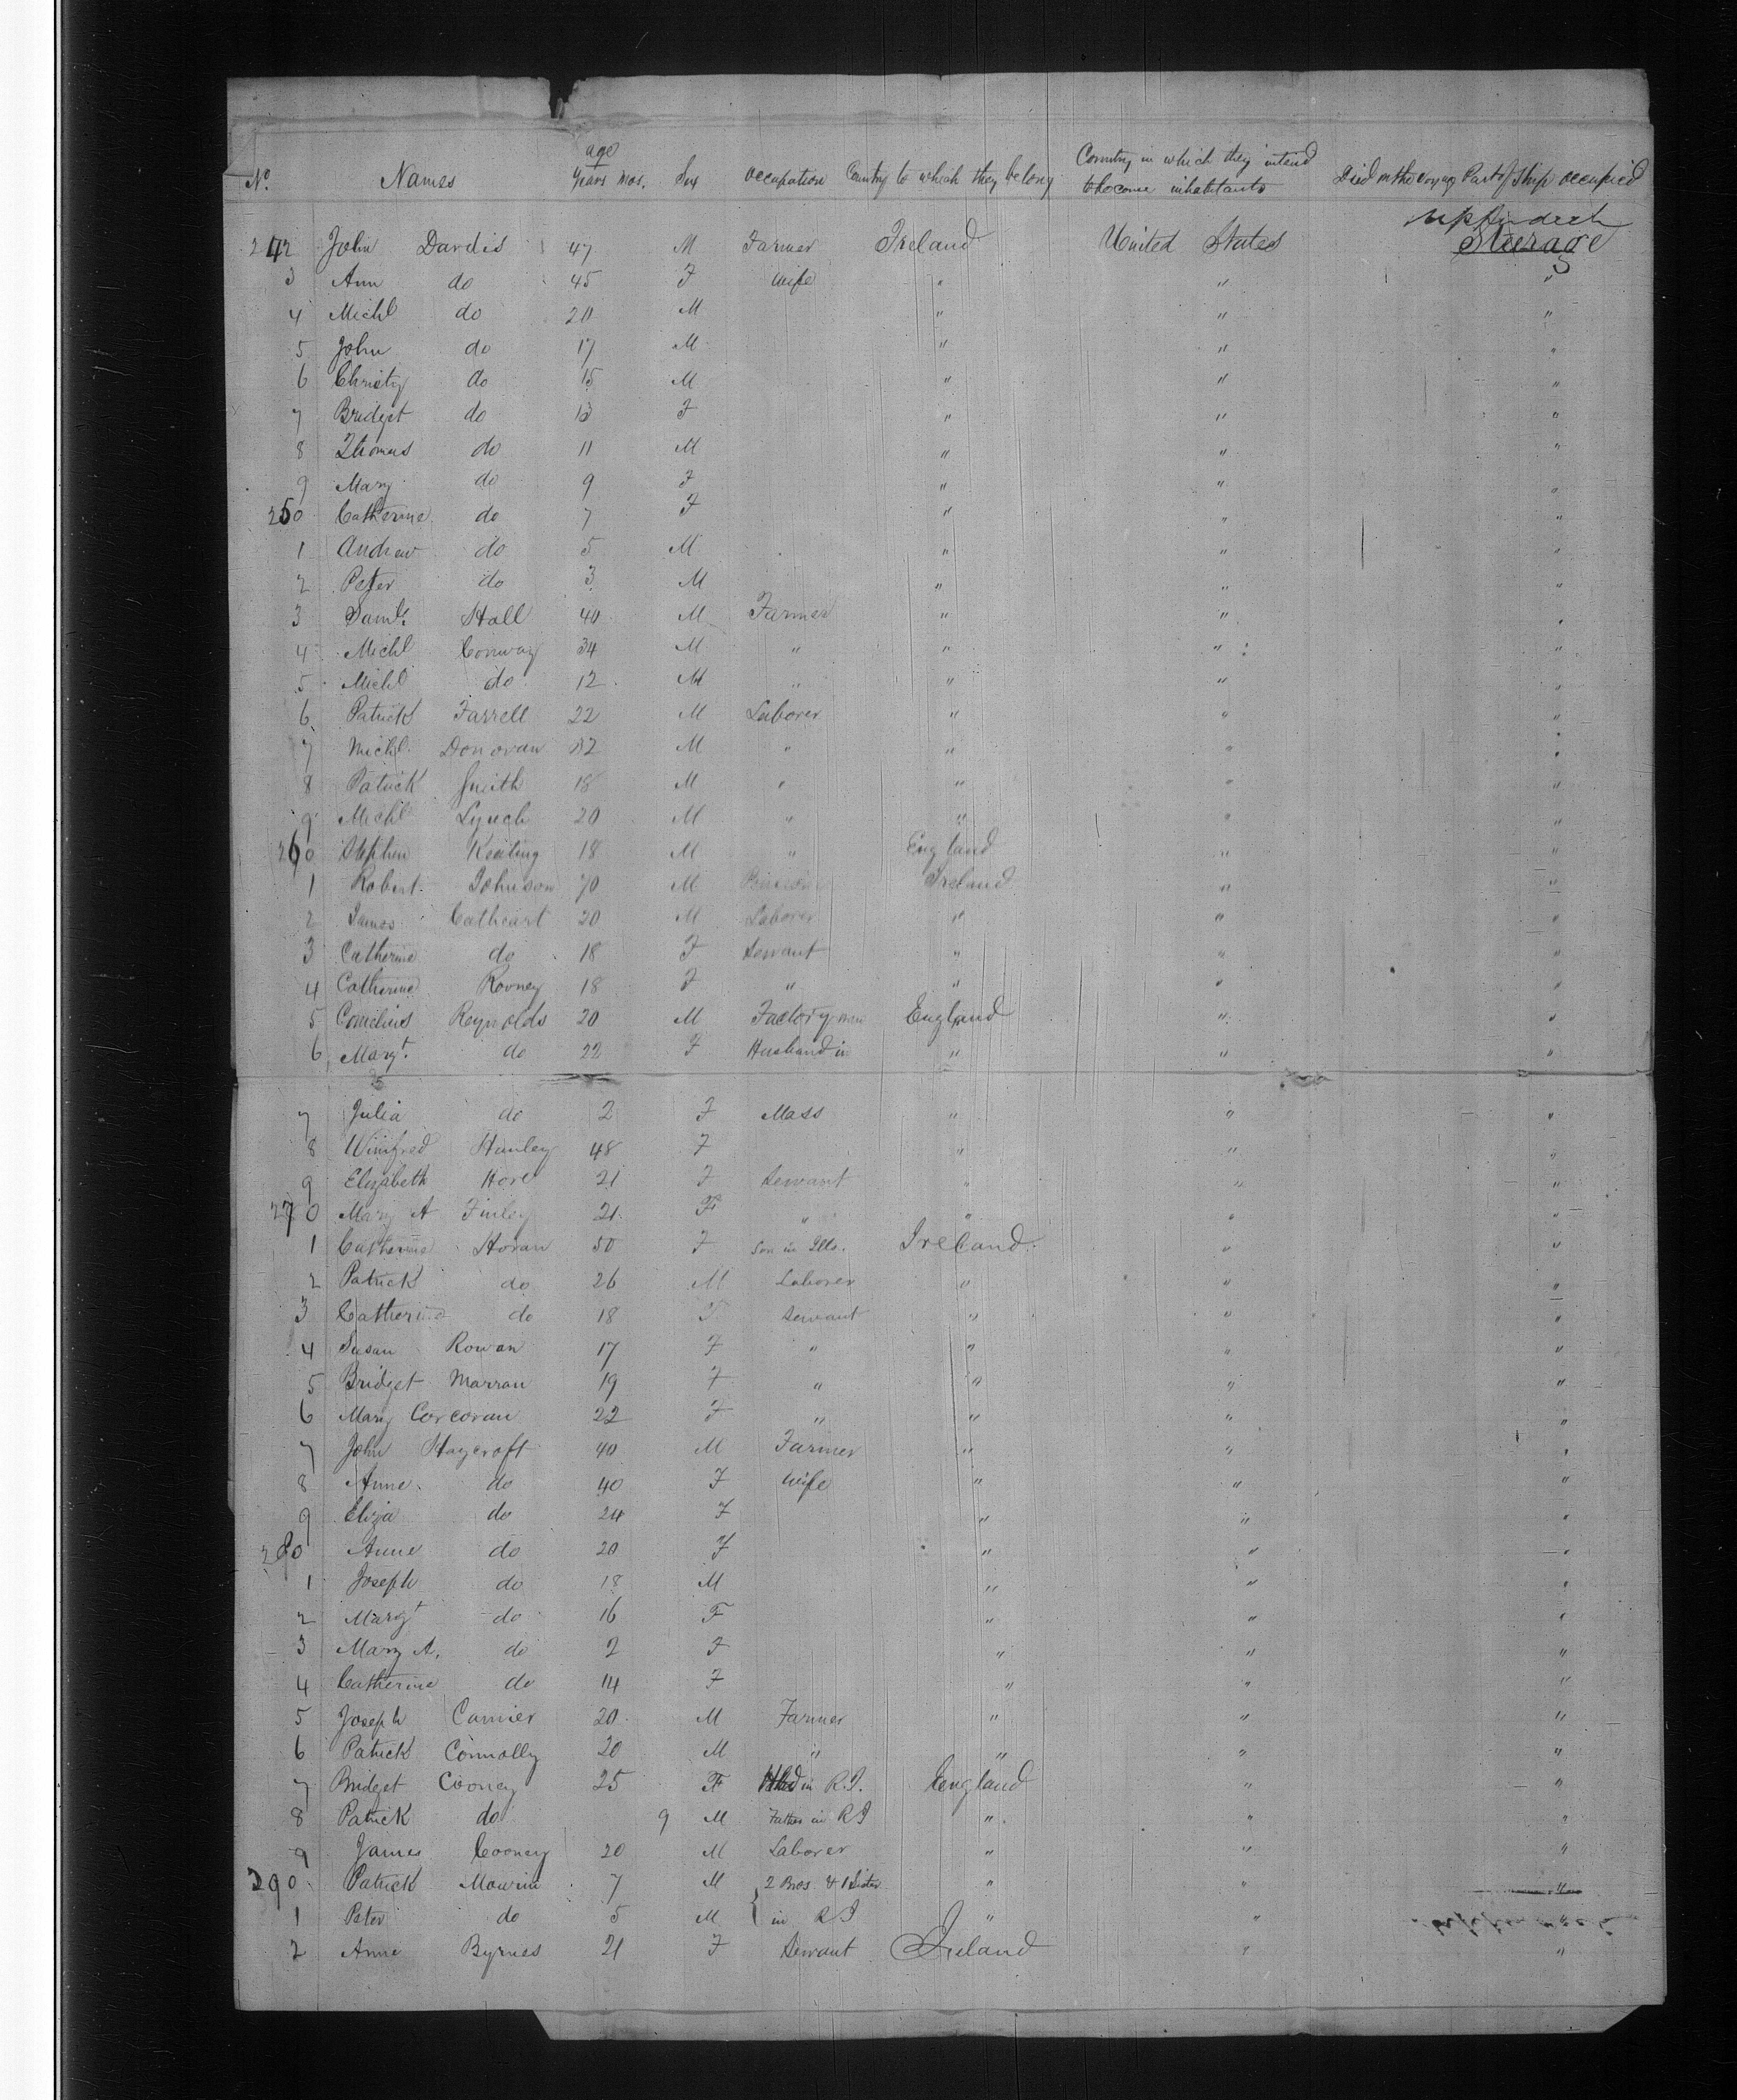 No. Names age Years mos. Sex occupation Country to which they belong Country in which they intend to become inhabitants Died on the voyage Part of Ship occupied
upper deck
242 John Dardis 47 M Farmer Ireland United States Steerage
3 Ann do 45 F Wife " " "
4 Michl do 20 M " " "
5 John do 17 M " " "
6 Christy do 15 M " " "
7 Bridget do 13 F " " "
8 Thomas do 11 M " " "
9 Mary do 9 F " " "
250 Catherine do 7 F " " "
1 Andrew do 5 M " " "
2 Peter do 3 M " " "
3 Saml. Hall 40 M Farmer " " "
4 Michl Conway 34 M " " " "
5 Michl do 12 M " " " "
6 Patrick Farrell 22 M Laborer " " "
7 Michl. Donovan M " " " "
8 Patrick Smith 18 M " " " "
9 Michl Lynch 20 M " " " "
260 Stephen Keating 18 M " England " "
1 Robert Johnson 70 M Ireland " "
2 James Cathcart 20 M Laborer " " "
3 Catherine do 18 F Servant " " "
4 Catherine Rooney 18 F " " " "
5 Cornelius Reynolds 20 M Factory man England " "
6 Margt. do 22 F Husband in " " "
7 Julia do 2 F Mass " " "
8 Winifred Hanley 48 F " " "
9 Elizabeth Hore 21 F Servant " " "
270 Mary A Finley 21 F " " " "
1 Catherine Horan 50 F Son in Ills. Ireland " "
2 Patrick do 26 M Laborer " " "
3 Catherine do 18 F Servant " " "
4 Susan Rowan 17 F " " " "
5 Bridget Marran 19 F " " " "
6 Mary Corcoran 22 F " " " "
7 John Haycroft 40 M Farmer " " "
8 Anne do 40 F Wife " " "
9 Eliza do 24 F " " "
280 Anne do 20 F " " "
1 Joseph do 18 M " " "
2 Margt do 16 F " " "
3 Mary A. do 2 F " " "
4 Catherine do 14 F " " "
5 Joseph Carrier 20 M Farmer " " "
6 Patrick Connolly 20 M " " " "
7 Bridget Cooney 25 F in R.I. England " "
8 Patrick do 9 M Father in R I " " "
9 James Cooney 20 M Laborer " " "
290 Patrick 7 M 2 Bros. & 1 Sister " " "
1 Peter do 5 M in R I " " "
2 Anne Byrnes 21 F Servant Ireland " "